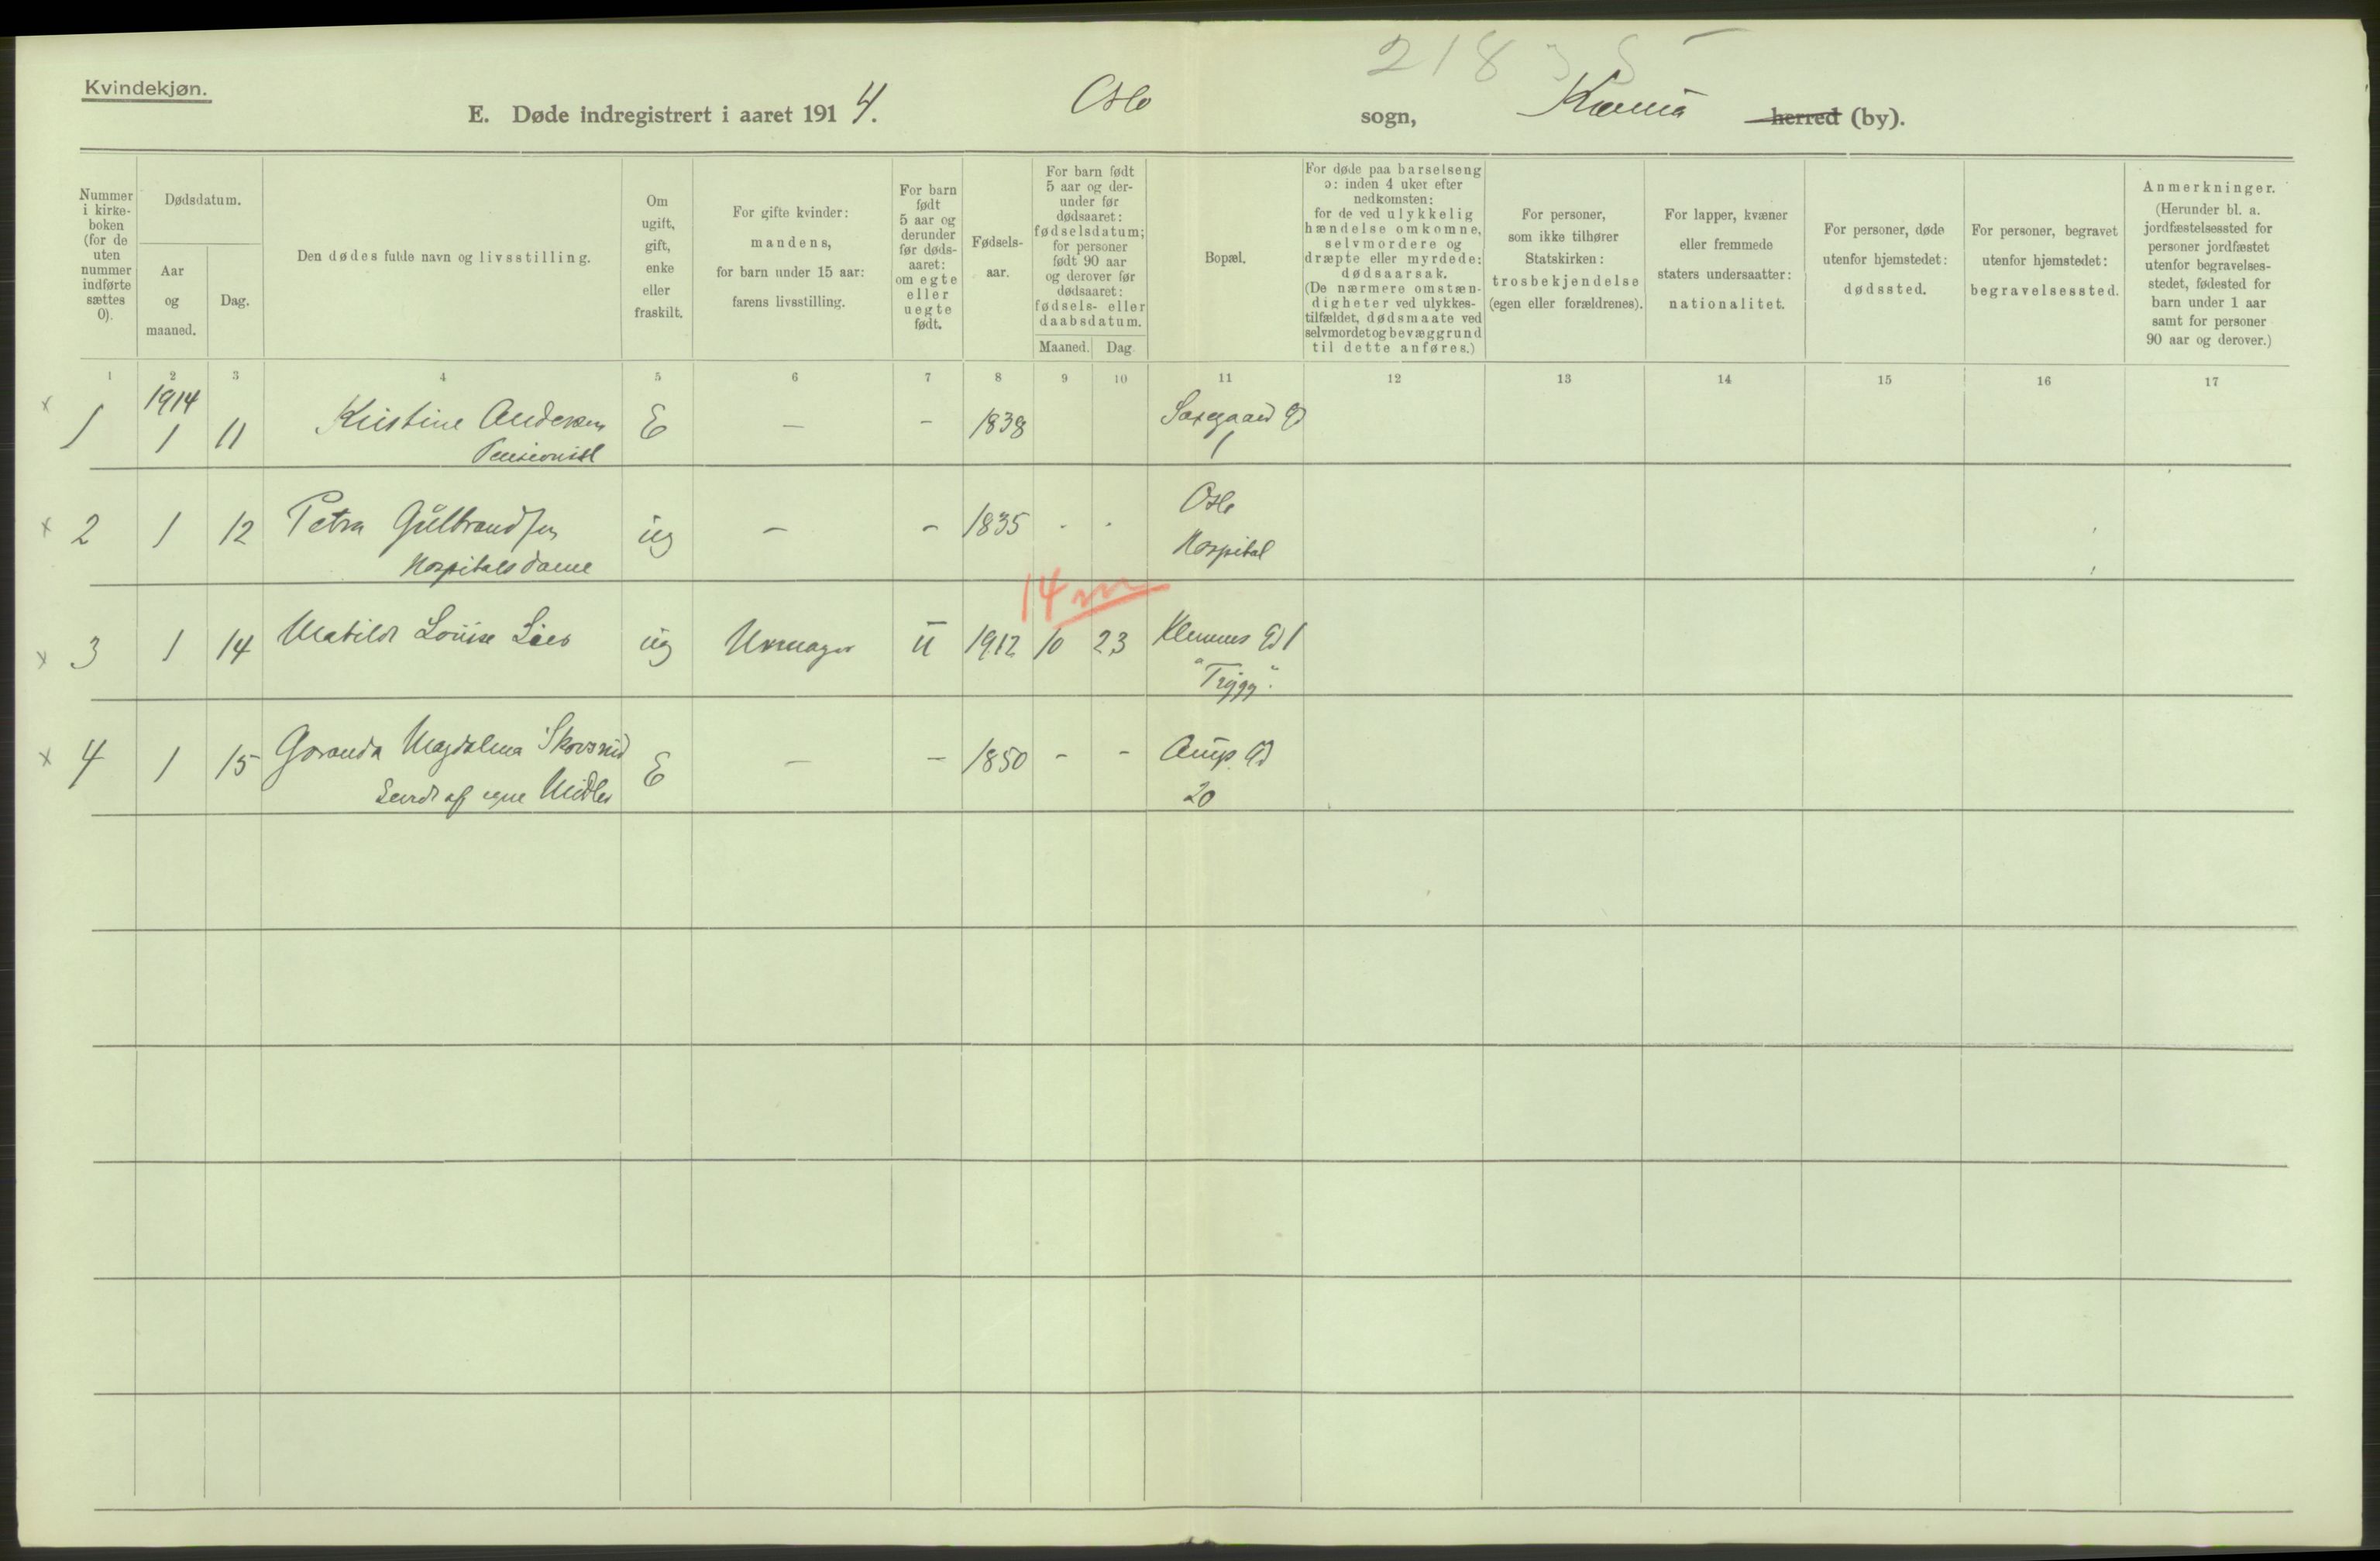 21835
Kvindekjøn.
E. Døde indregistrert i aaret 1914. Oslo sogn, herred (by).
Nummer i kirke-boken (for de uten nummer indførte sættes 0).
Dødsdatum.
Aar og maaned.
Dag.
Den dødes fulde navn og livsstilling.
Om ugift, gift, enke eller fraskilt.
For gifte kvinder: mandens, for barn under 15 aar: farens livsstilling.
For barn født 5 aar og derunder før døds-aaret: om egte eller uegte født.
Fødsels-aar.
For barn født 5 aar og der-under før dødsaaret: fødselsdatum; for personer født 90 aar og derover før dødsaaret: fødsels- eller daabsdatum.
Maaned.
Dag.
Bopæl.
For døde paa barselseng ɔ: inden 4 uker efter nedkomsten: for de ved ulykkelig hændelse omkomne, selvmordere og dræpte eller myrdede: dødsaarsak. (De nærmere omstæn-digheter ved ulykkes-tilfældet, dødsmaate ved selvmordet og bevæggrund til dette anføres.)
For personer, som ikke tilhører Statskirken: trosbekjendelse (egen eller forældrenes).
For lapper, kvæner eller fremmede staters undersaatter: nationalitet.
For personer, døde utenfor hjemstedet: dødssted.
For personer, begravet utenfor hjemstedet: begravelsessted.
Anmerkninger. (Herunder bl. a. jordfæstelsessted for personer jordfæstet utenfor begravelses-stedet, fødested for barn under 1 aar samt for personer 90 aar og derover.)
1 2 3 4 5 6 7 8 9 10 11 12 13 14 15 16 17
1914
x 1 1 11 Kristine Andersen E — - 1838 Saxegaard Gd
Pensionist 1
x 2 1 12 Petra Gulbrandsen ug — - 1835 - - Oslo
Hospitalsdame Hospital
14 m
x 3 1 14 Matilde Louise ug Urmager u 1912 10 23 Klemens Gd 1
"Trygg".
x 4 1 15 Magdalena E — - 1850 - - Gd
Levede af egne Midler 20